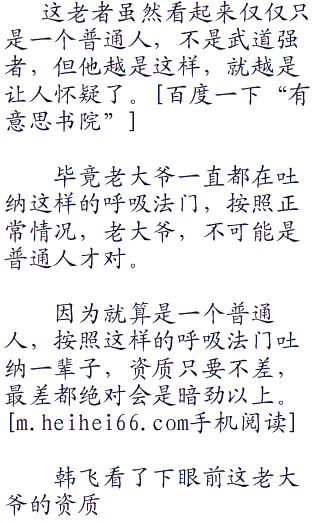 这老者虽然看起来仅仅只
是一个普通人，不是武道强
者，但他越是这样，就越是
让人怀疑了。[百度一下“有
意思书院”]
毕竟老大爷一直都在吐
纳这样的呼吸法门，按照正
常情况，老大爷，不可能是
普通人才对。
因为就算是一个普通
人，按照这样的呼吸法门吐
纳一辈子，资质只要不差，
最差都绝对会是暗劲以上。
[m.heihei66.com手机阅读]
韩飞看了下眼前这老大
爷的资质